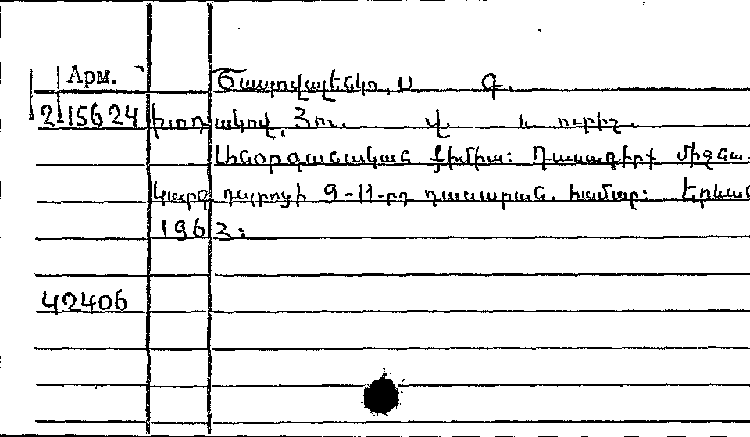 Арм. Շապովալենկո, Ս. Գ.
2-15624 Խոդակով, Յու. Վ. և ուրիշ.
Անօրգանական քիմիա: Դասագիրք միջնա
կարգ դպրոցի 9-11-րդ դասարան. համար: Երևան
1963:
42406